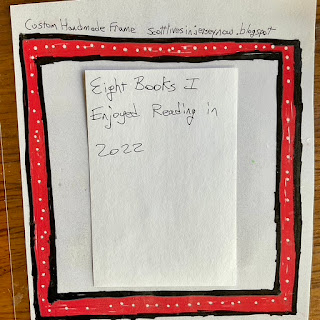 Custom Handmade Frame scottlivesinjerseynow.blogspot
Eight Books I
Enjoyed Reading in
2022